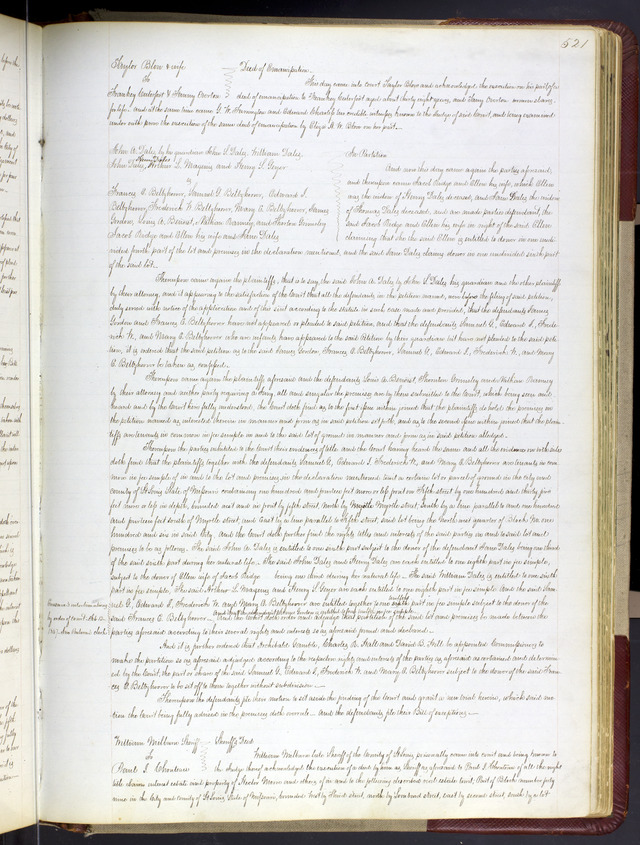 521
Taylor Blow & wife Deed of Emancipation.
To This day came into court Taylor Blow and acknowledged the execution on his part of a
Frankey & Henry deed of emancipation to Frankey aged about thirty eight years, and Henry slaves
for life. And at the same time came G. W. and Edward two credible witnesses known to the Judge of said Court, and being examined
under oath prove the execution of the same deed of emancipation by W. Blow on her part.
John A. Daley by his guardian John S. Daley, William Daley In Partition
John Daley, Henry Daley Arthur L. Magenis and Henry S. Geyer And now this day come again the parties aforesaid,
vs and thereupon came Jacob and Ellen his wife, which Ellen
Francis A. Bettzhoover, Samuel G. Bettzhoover, Edward L. was the widow of Henry Daley deceased, and Jane Daley the widow
Bettzhoover, Frederick W. Bettzhoover, Mary A. Bettzhoover, James of Thomas Daley deceased, and are made parties defendant, the
Gordon, Louis A. Benoist, William Ramsey and Thornton Grimsley said Jacob and Ellen his wife in right of the said Ellen
Jacob and Ellen his wife and Jane Daley claiming that she the said Ellen is entitled to dower in one undi-
vided fourth part of the lot and premises in the declaration mentioned, and the said Jane Daley claims dower in one undivided sixth part
of the said lot.
Thereupon came again the plaintiffs, that is to say, the said John A. Daley by John S. Daley his guardian and the other plaintiffs
by their attorney, and it appearing to the satisfaction of the Court that all the defendants in the petition named, were before the filing of said petition,
duly served with notice of the application and of this suit according to the statute in such case made and provided, that the defendants James
Gordon and Francis A. Bettzhoover have not appeared or pleaded to said petition, and that the defendants Samuel G., Edward L., Frede-
rick W., and Mary A. Bettzhoover who are infants, have appeared to the said Petition by their guardian but have not pleaded to the said peti-
tion, it is ordered that the said petition as to the said James Gordon, Francis A. Bettzhoover, Samuel G., Edward L., Frederick W., and Mary
A. Bettzhoover be taken as confessed.
Thereupon came again the plaintiffs aforesaid and the defendants Louis A. Benoist, Thornton Grimsley and William Ramsey
by their attorney and neither party requiring a Jury, all and singular the premises are by them submitted to the Court, which being seen and
heard and by the Court here fully understood, the Court doth find as to the first issue within joined that the plaintiffs do hold the premises in
the petition named as interested therein in manner and form as in said petition set forth, and as to the second issue within joined that the plain-
tiffs are tenants in common in fee simple in and to the said lot of ground in manner and form as in said petition alleged.
Thereupon the parties exhibited to the Court their evidences of title, and the Court having heard the same and all the evidence on both sides
doth find that the plaintiffs together with the defendants, Samuel G., Edward L., Frederick W., and Mary A. Bettzhoover are tenants in com-
mon in fee simple of in and to the lot and premises in the declaration mentioned viz a certain lot or parcel of ground in the city and
county of St Louis State of Missouri containing one hundred and fourteen feet more or less front on Fifth street by one hundred and thirty five
feet more or less in depth, bounded west and in front by fifth street, north by Myrtle street, South by a line parallel to and one hundred
and fourteen feet south of Myrtle street, and East by a line parallel to Fifth street, said lot being the North west quarter of Block No. one
hundred and six in said City. And the court doth further find the rights, titles and interests of the said parties in and to said lot and
premises to be as follows. The said John A. Daley is entitled to one sixth part subject to the dower of the defendant Jane Daley being one third
of the said sixth part during her natural life. The said John Daley and Henry Daley are each entitled to one eighth part in fee simple,
subject to the dower of Ellen wife of Jacob being one third during her natural life. The said William Daley is entitled to one sixth
part in fee simple. The said Arthur L. Magenis and Henry S. Geyer are each entitled to one eighth part in fee simple. And the said Sam-
uel G., Edward L., Frederick W. and Mary A. Bettzhoover are entitled together to one twelfth part in fee simple subject to the dower of the
said Francis A. Bettzhoover. And the Court doth order and adjudge that partition of the said lot and premises be made between the
parties aforesaid according to their several rights and interests so as aforesaid found and declared.
And it is further ordered that Archibald Gamble, Charles R. Hall and David B. Hill be appointed Commissioners to
make the partition so as aforesaid adjudged according to the respective rights and interests of the parties as aforesaid ascertained and determin-
ed by the Court, the part or share of the said Samuel G., Edward L., Frederick W. and Mary A. Bettzhoover subject to the dower of the said Fran-
cis A. Bettzhoover to be set off to them together without subdivision.
Thereupon the defendants file their motion to set aside the finding of the Court and grant a new trial herein, which said mo-
tion the Court being fully advised in the premises doth overrule. And the defendants file their Bill of exceptions.
William Milburn Sheriff Sheriff's Deed
To William Milburn late Sheriff of the County of St Louis, personally came into court and being known to
Paul J. Chouteau the Judge thereof acknowledged the execution of a deed by him as Sheriff as aforesaid to Paul J. Chouteau of all the right
title claim interest estate and property of and others, of in and to the following described real estate to wit, Part of Block number forty
nine in the City and County of St Louis, State of Missouri, bounded West by Third street, north by Lombard street, east by second street, south by a lot